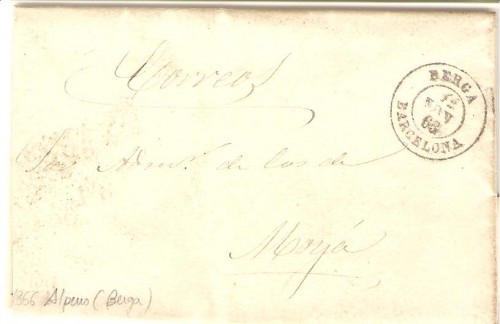 Correos
BERGA
12
NOV
63
BARCELONA
Sor Admor. de los de
Moyá
1866 Alpens (Berga)